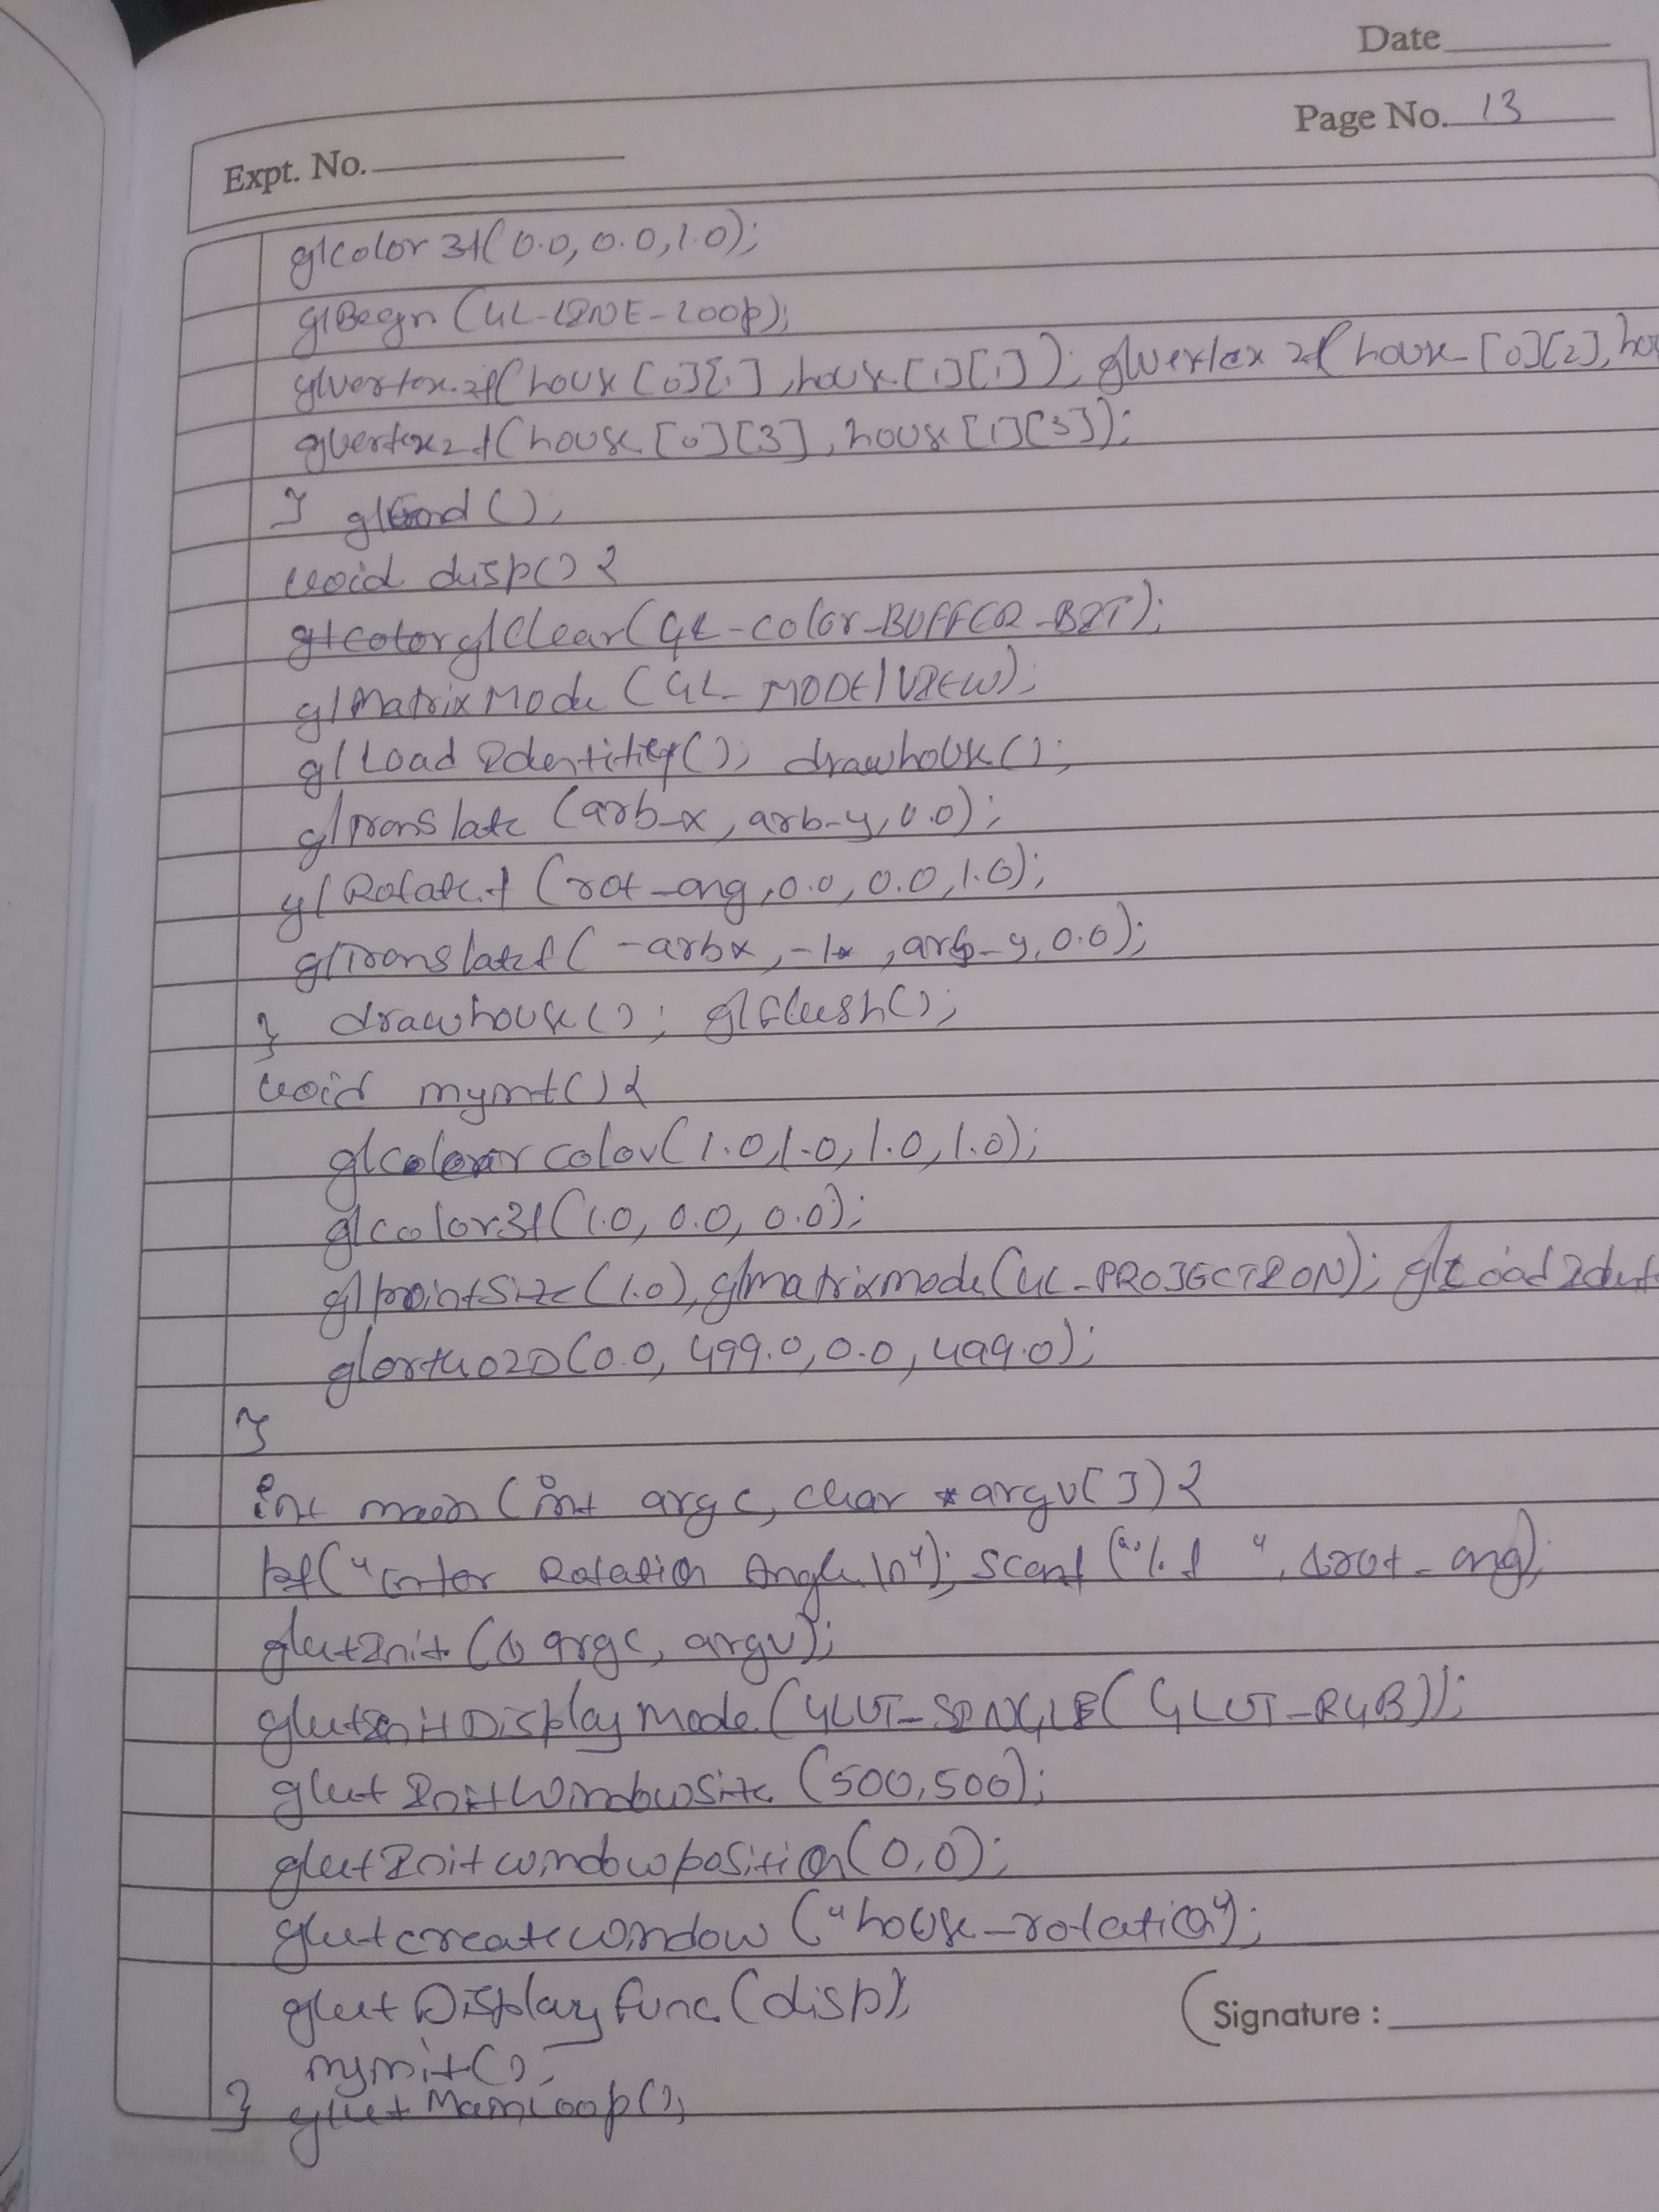 Date
Page No. 13
Expt. No.
glcolor 3f(0.0, 0.0, 1.0);
glBegin (GL-LINE-LOOP);
glvertex2f(house[0][1], house[1][1]); glvertex 2f(house[0][2], hou
glvertex2f(house[0][3], house[1][3]);
} glEnd();
void disp() {
glcolor glClear(GL-color-BUFFER-BIT);
glMatrixMode (GL-MODElVIEW);
glLoad Identitity(); drawhouse();
glTranslate (arb-x, arb-y, 0.0);
glRotatef (rot-ang, 0.0, 0.0, 1.0);
glTranslatef(-arbx, -1* , arb-y, 0.0);
} drawhouse(); glflush();
void myint() {
color(1.0, 1.0, 1.0, 1.0);
glcolor3f(1.0, 0.0, 0.0);
glpointSize(1.0), glmatrixmode(GL-PROJECTION); glLoadIdent
glortho2D(0.0, 499.0, 0.0, 499.0);
}
int main (int argc, char *argv[]) {
pf("Enter Rotation Angle\n"); scanf ("%f ", &rot-ang);
glutInit (& argc, argv);
glutInitDisplayMode (GLUT-SINGLE( GLUT-RGB));
glut InitWindowSize (500,500);
glutInitwindowposition(0,0);
glutcreatewindow ("house-rotation");
glutDisplayfunc(disp);
Signature :
myinit();
} glutMainLoop();